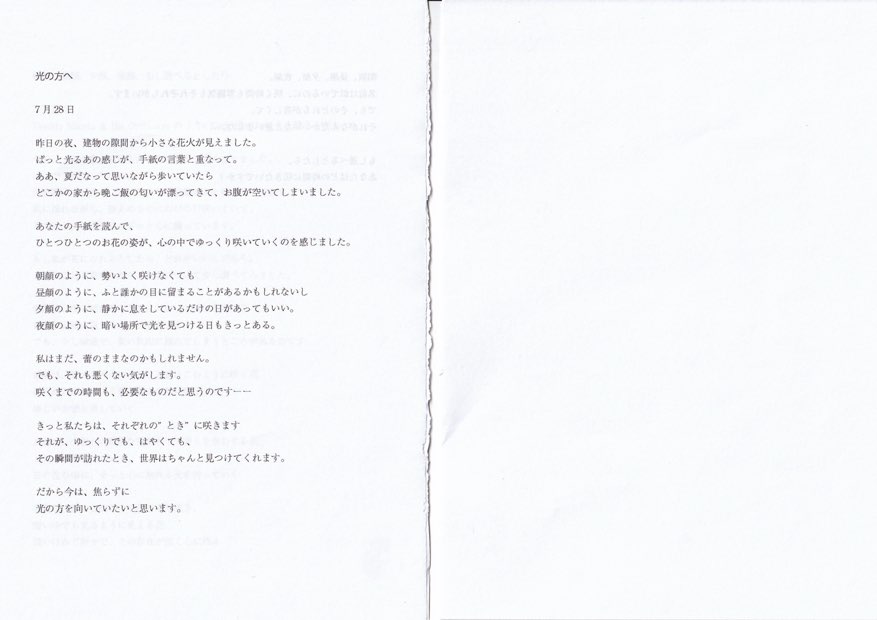 光の方へ
7月28日
昨日の夜、建物の隙間から小さな花火が見えました。
ぱっと光るあの感じが、手紙の言葉と重なって。
ああ、夏だなって思いながら歩いていたら
どこかの家から晩ご飯の匂いが漂ってきて、お腹が空いてしまいました。
あなたの手紙を読んで、
ひとつひとつのお花の姿が、心の中でゆっくり咲いていくのを感じました。
朝顔のように、勢いよく咲けなくても
昼顔のように、ふと誰かの目に留まることがあるかもしれないし
夕顔のように、静かに息をしているだけの日があってもいい。
夜顔のように、暗い場所で光を見つける日もきっとある。
私はまだ、蕾のままなのかもしれません。
でも、それも悪くない気がします。
咲くまでの時間も、必要なものだと思うのですーー
きっと私たちは、それぞれの"とき"に咲きます
それが、ゆっくりでも、はやくても、
その瞬間が訪れたとき、世界はちゃんと見つけてくれます。
だから今は、焦らずに
光の方を向いていたいと思います。